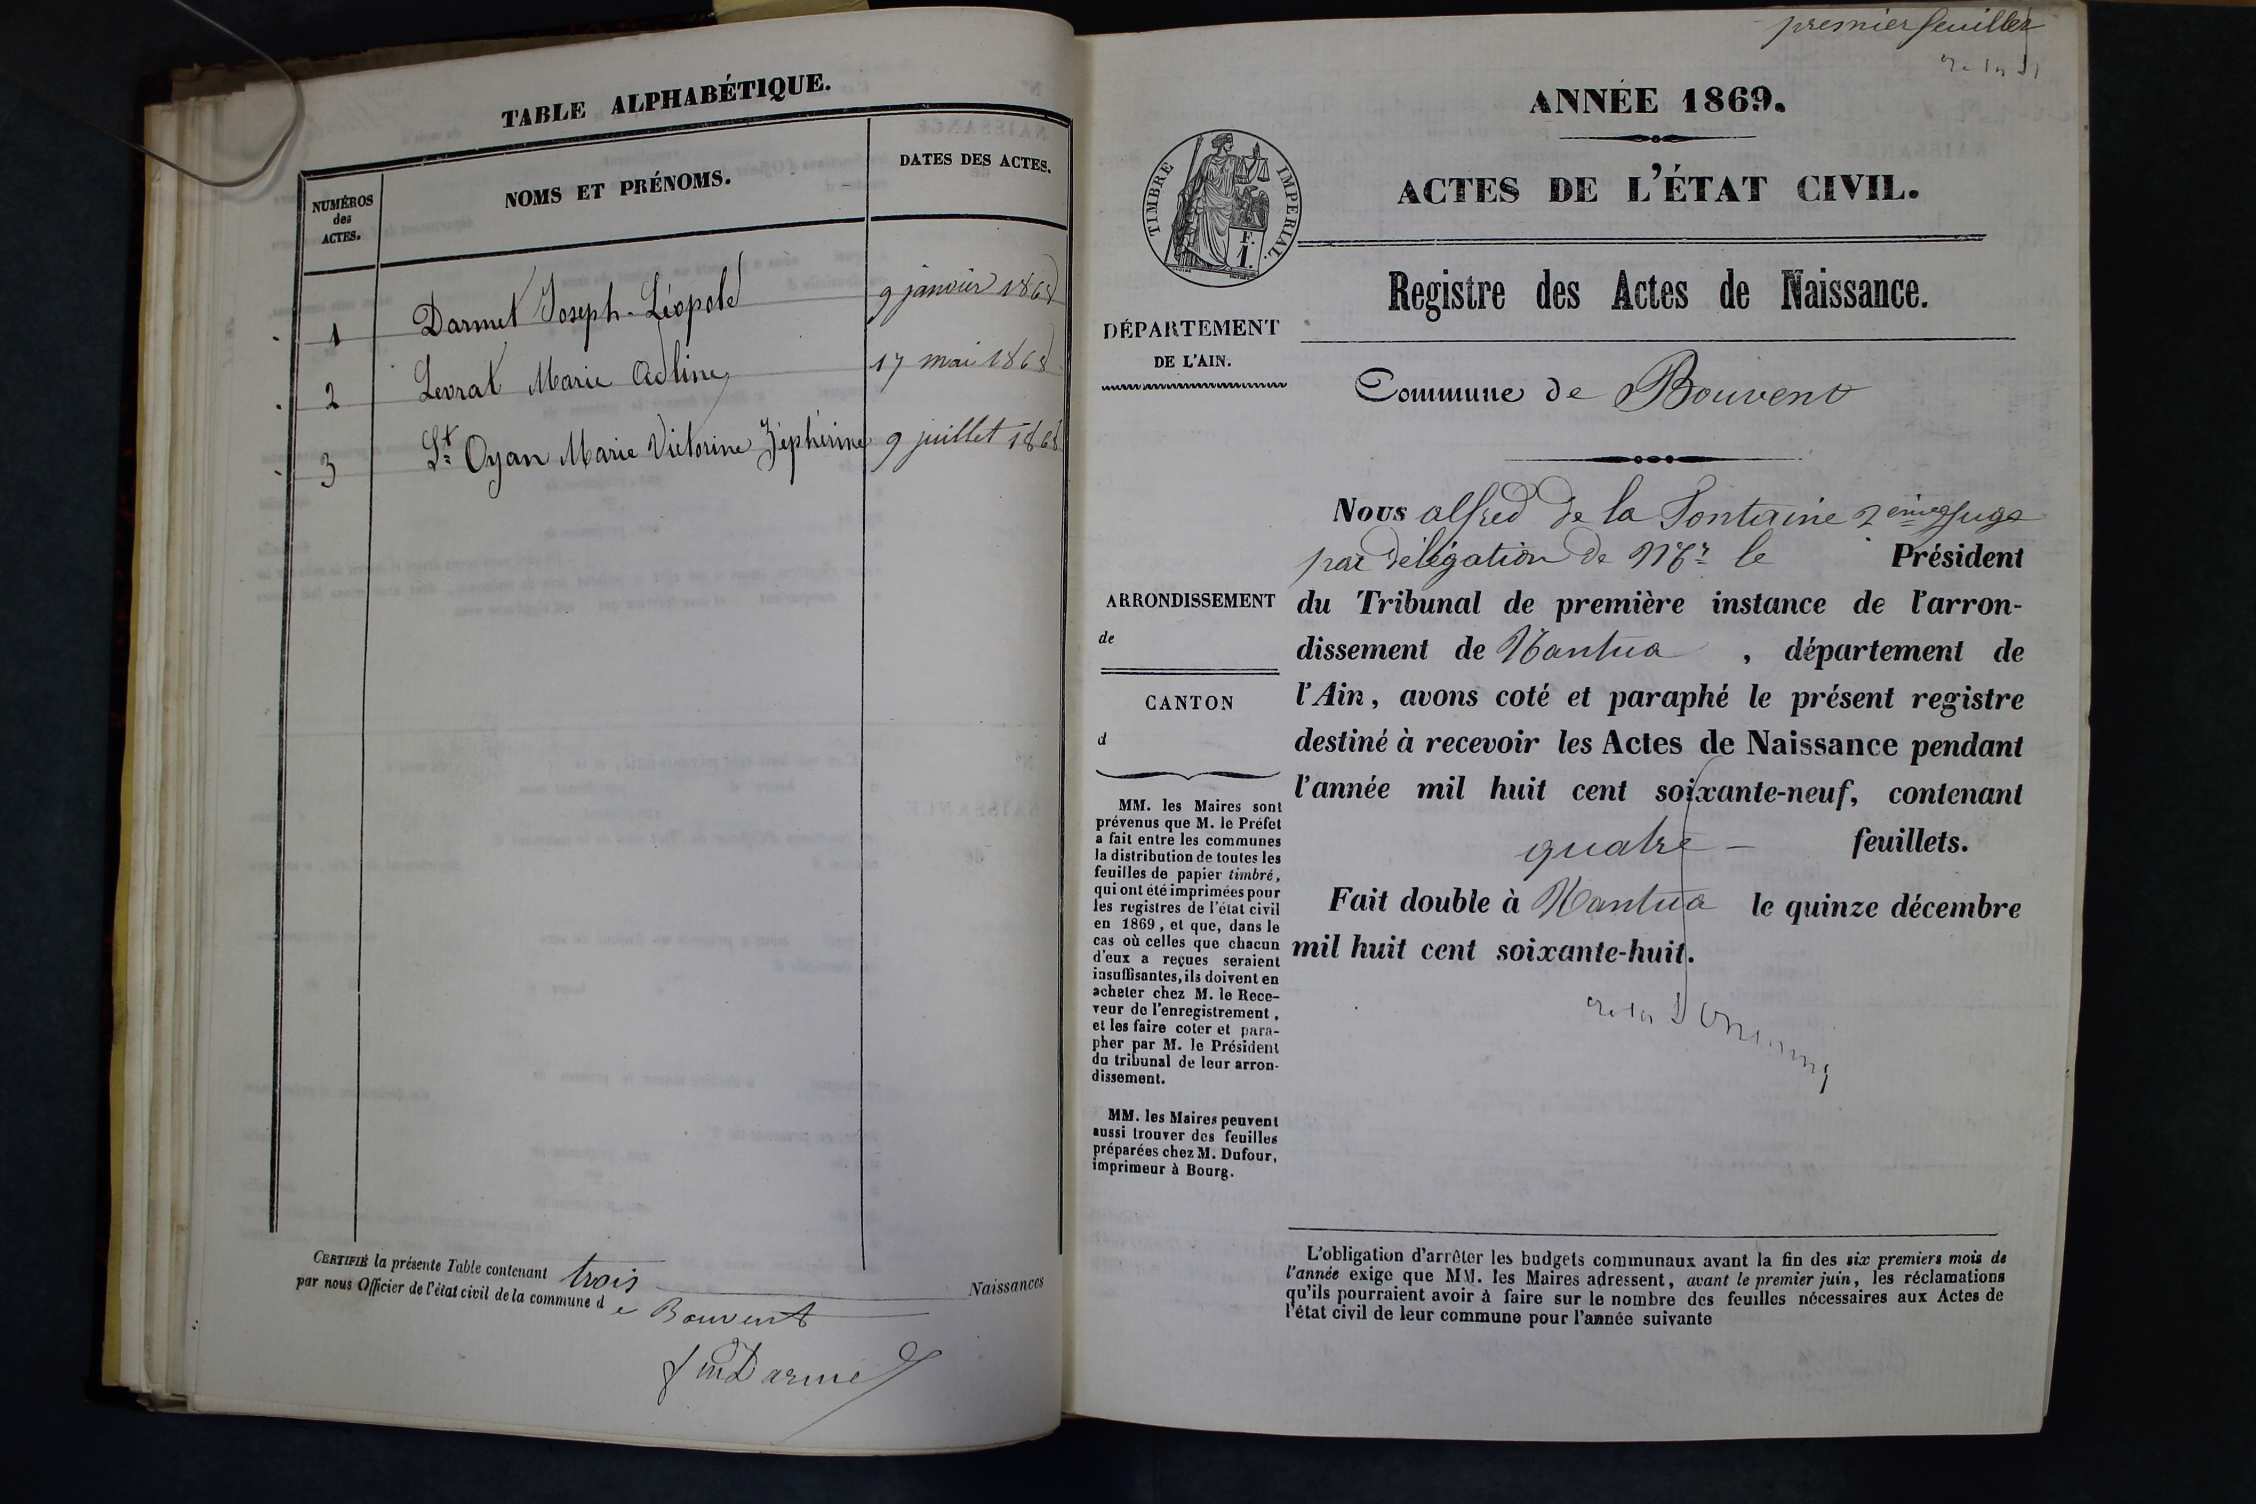 TABLE ALPHABÉTIQUE.
NUMÉROS
des
ACTES.
NOMS ET PRÉNOMS.
DATES DES ACTES.
1 Darmet Joseph-Léopold 9 janvier 1868
2 Levrat Marie Adline 17 mai 1868
3 St Oyan Marie Victorine Zéphirine 9 juillet 1868
CERTIFIÉ la présente Table contenant trois Naissances
par nous Officier de l'état civil de la commune d e Bouvent
Darmet
premier feuillet
ANNÉE 1869.
ACTES DE L'ÉTAT CIVIL.
TIMBRE IMPERIAL.
F.
1.
Registre des Actes de Naissance.
DÉPARTEMENT
DE L'AIN.
Commune de Bouvent
Nous alfred de la Fontaine 2ème Juge
par délégation de Mr le Président
du Tribunal de première instance de l'arron-
dissement de Nantua , département de
l'Ain, avons coté et paraphé le présent registre
destiné à recevoir les Actes de Naissance pendant
l'année mil huit cent soixante-neuf, contenant
quatre - feuillets.
Fait double à Nantua le quinze décembre
mil huit cent soixante-huit.
ARRONDISSEMENT
de
CANTON
d
MM. les Maires sont
prévenus que M. le Préfet
a fait entre les communes
la distribution de toutes les
feuilles de papier timbré,
qui ont été imprimées pour
les registres de l'état civil
en 1869, et que, dans le
cas où celles que chacun
d'eux a reçues seraient
insuffisantes, ils doivent en
acheter chez M. le Rece-
veur de l'enregistrement,
et les faire coter et para-
pher par M. le Président
du tribunal de leur arron-
dissement.
MM. les Maires peuvent
aussi trouver des feuilles
préparées chez M. Dufour,
imprimeur à Bourg.
L'obligation d'arrêter les budgets communaux avant la fin des six premiers mois de
l'année exige que MM. les Maires adressent, avant le premier juin, les réclamations
qu'ils pourraient avoir à faire sur le nombre des feuilles nécessaires aux Actes de
l'état civil de leur commune pour l'année suivante